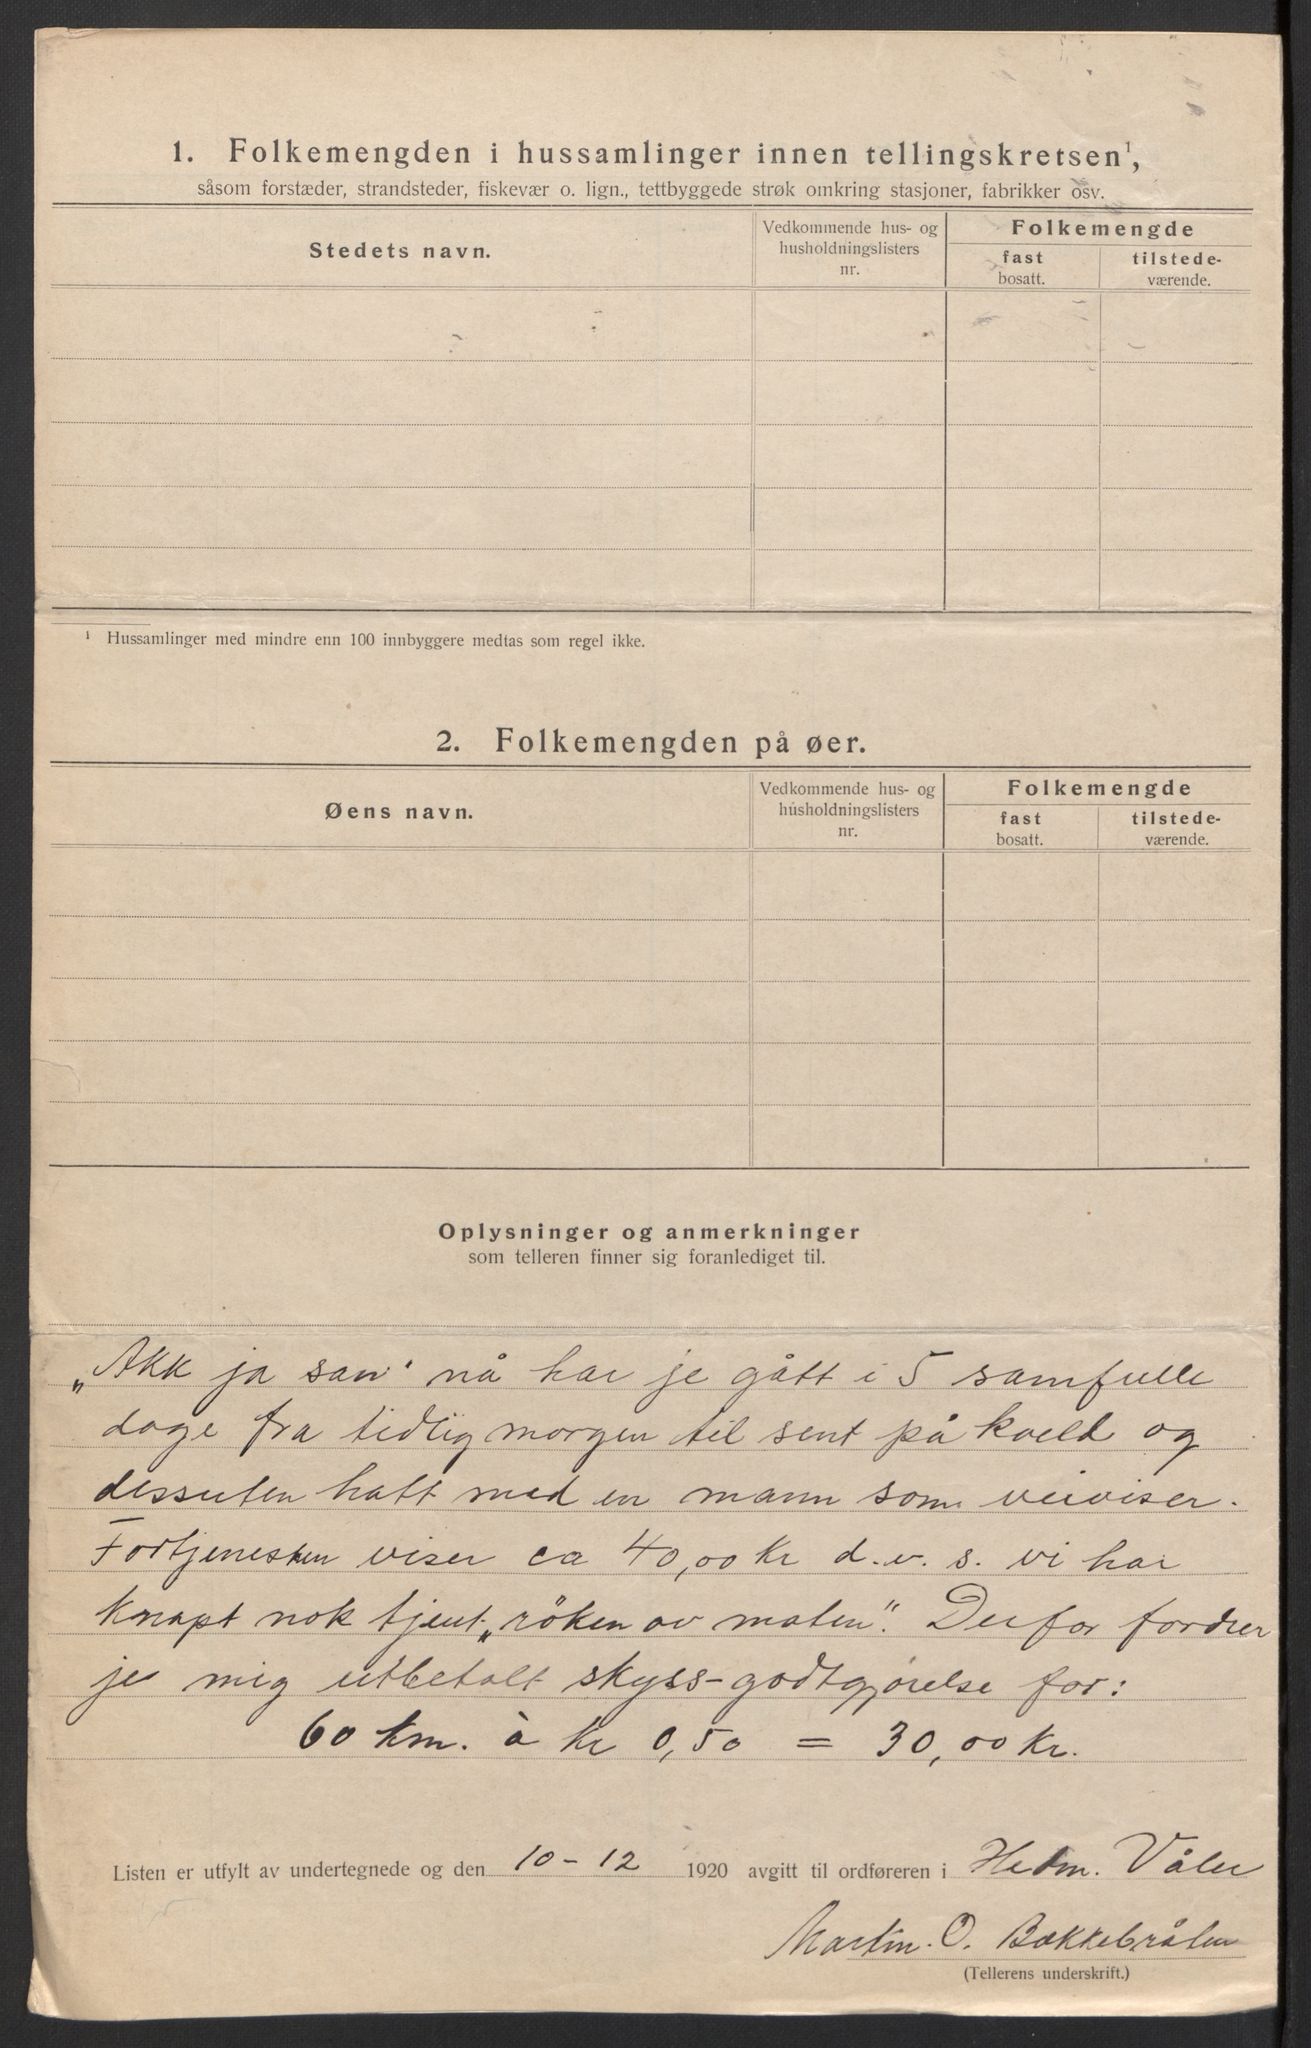 1. Folkemengden i hussamlinger innen tellingskretsen¹,
såsom forstæder, strandsteder, fiskevær o. lign., tettbyggede strøk omkring stasjoner, fabrikker osv.
Stedets navn.
Vedkommende hus- og
husholdningslisters
nr.
Folkemengde
fast
bosatt.
tilstede-
værende.
¹ Hussamlinger med mindre enn 100 innbyggere medtas som regel ikke.
2. Folkemengden på øer.
Øens navn.
Vedkommende hus- og
husholdningslisters
nr.
Folkemengde
fast
bosatt.
tilstede-
værende.
Oplysninger og anmerkninger
som telleren finner sig foranlediget til.
„Akk ja san" nå har je gått i 5 samfulle
dage fra tidlig morgen til sent på kveld og
dessuten hatt med en mann som veiviser.
Fortjenesten viser ca 40,00 kr d.v.s. vi har
knapt nok tjent „röken av maten". Derfor fordrer
je mig utbetalt skyss-godtgjørelse for:
60 km. à kr 0,50 = 30,00 kr.
Listen er utfylt av undertegnede og den 10-12 1920 avgitt til ordføreren i Hedm. Våler
Martin. O. Bakkebråten
(Tellerens underskrift.)